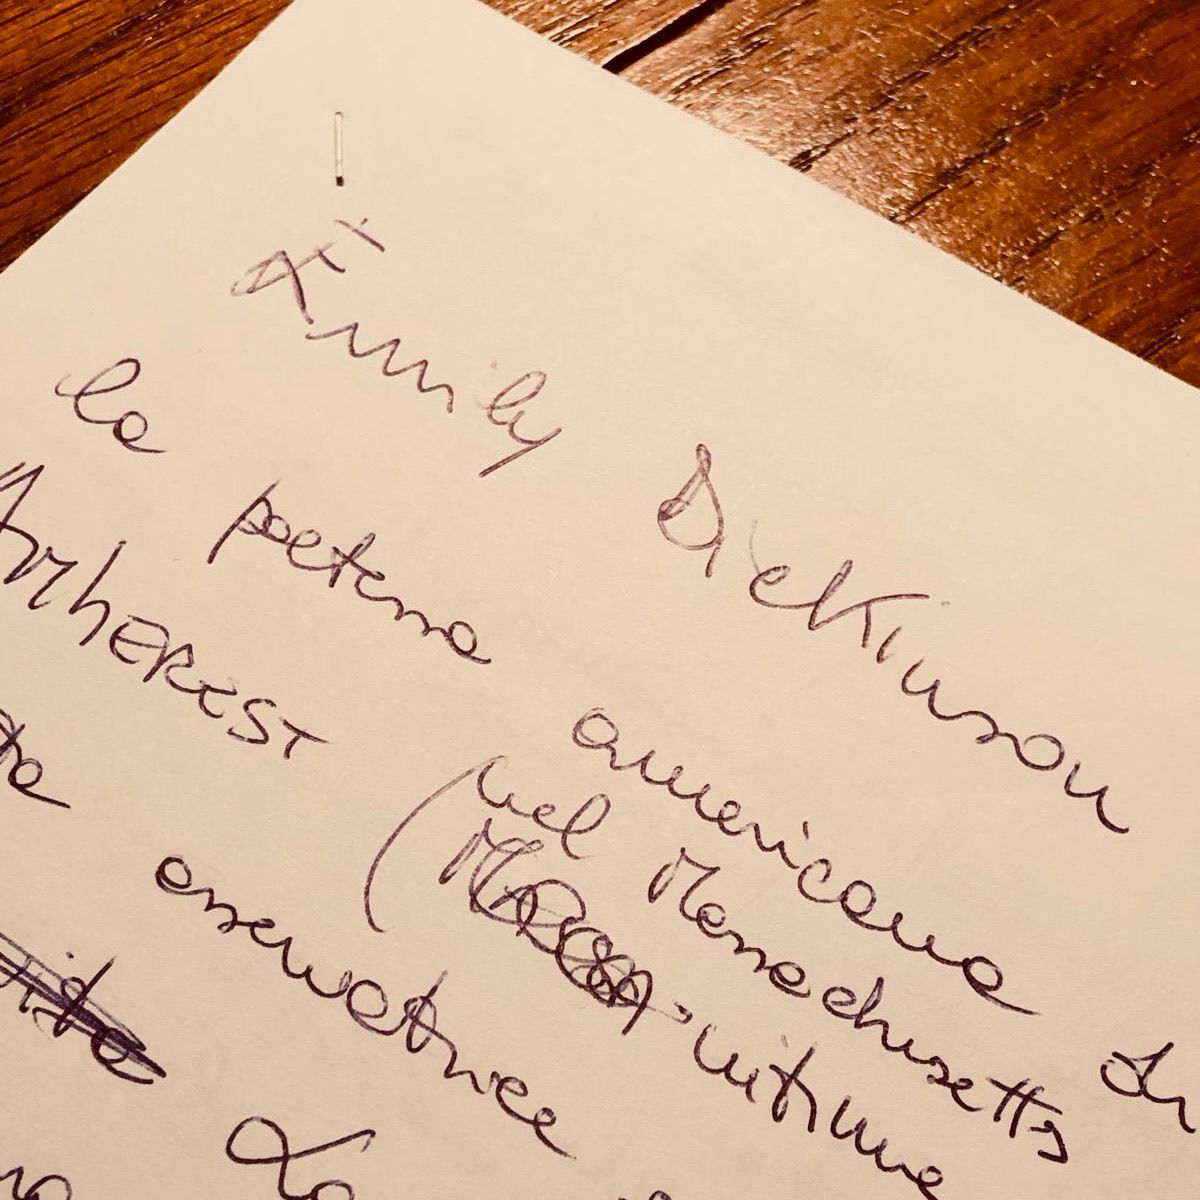 Emily Dickinson
la poetessa americana di
AmhERST nel Massachusetts
( intima
osservatrice